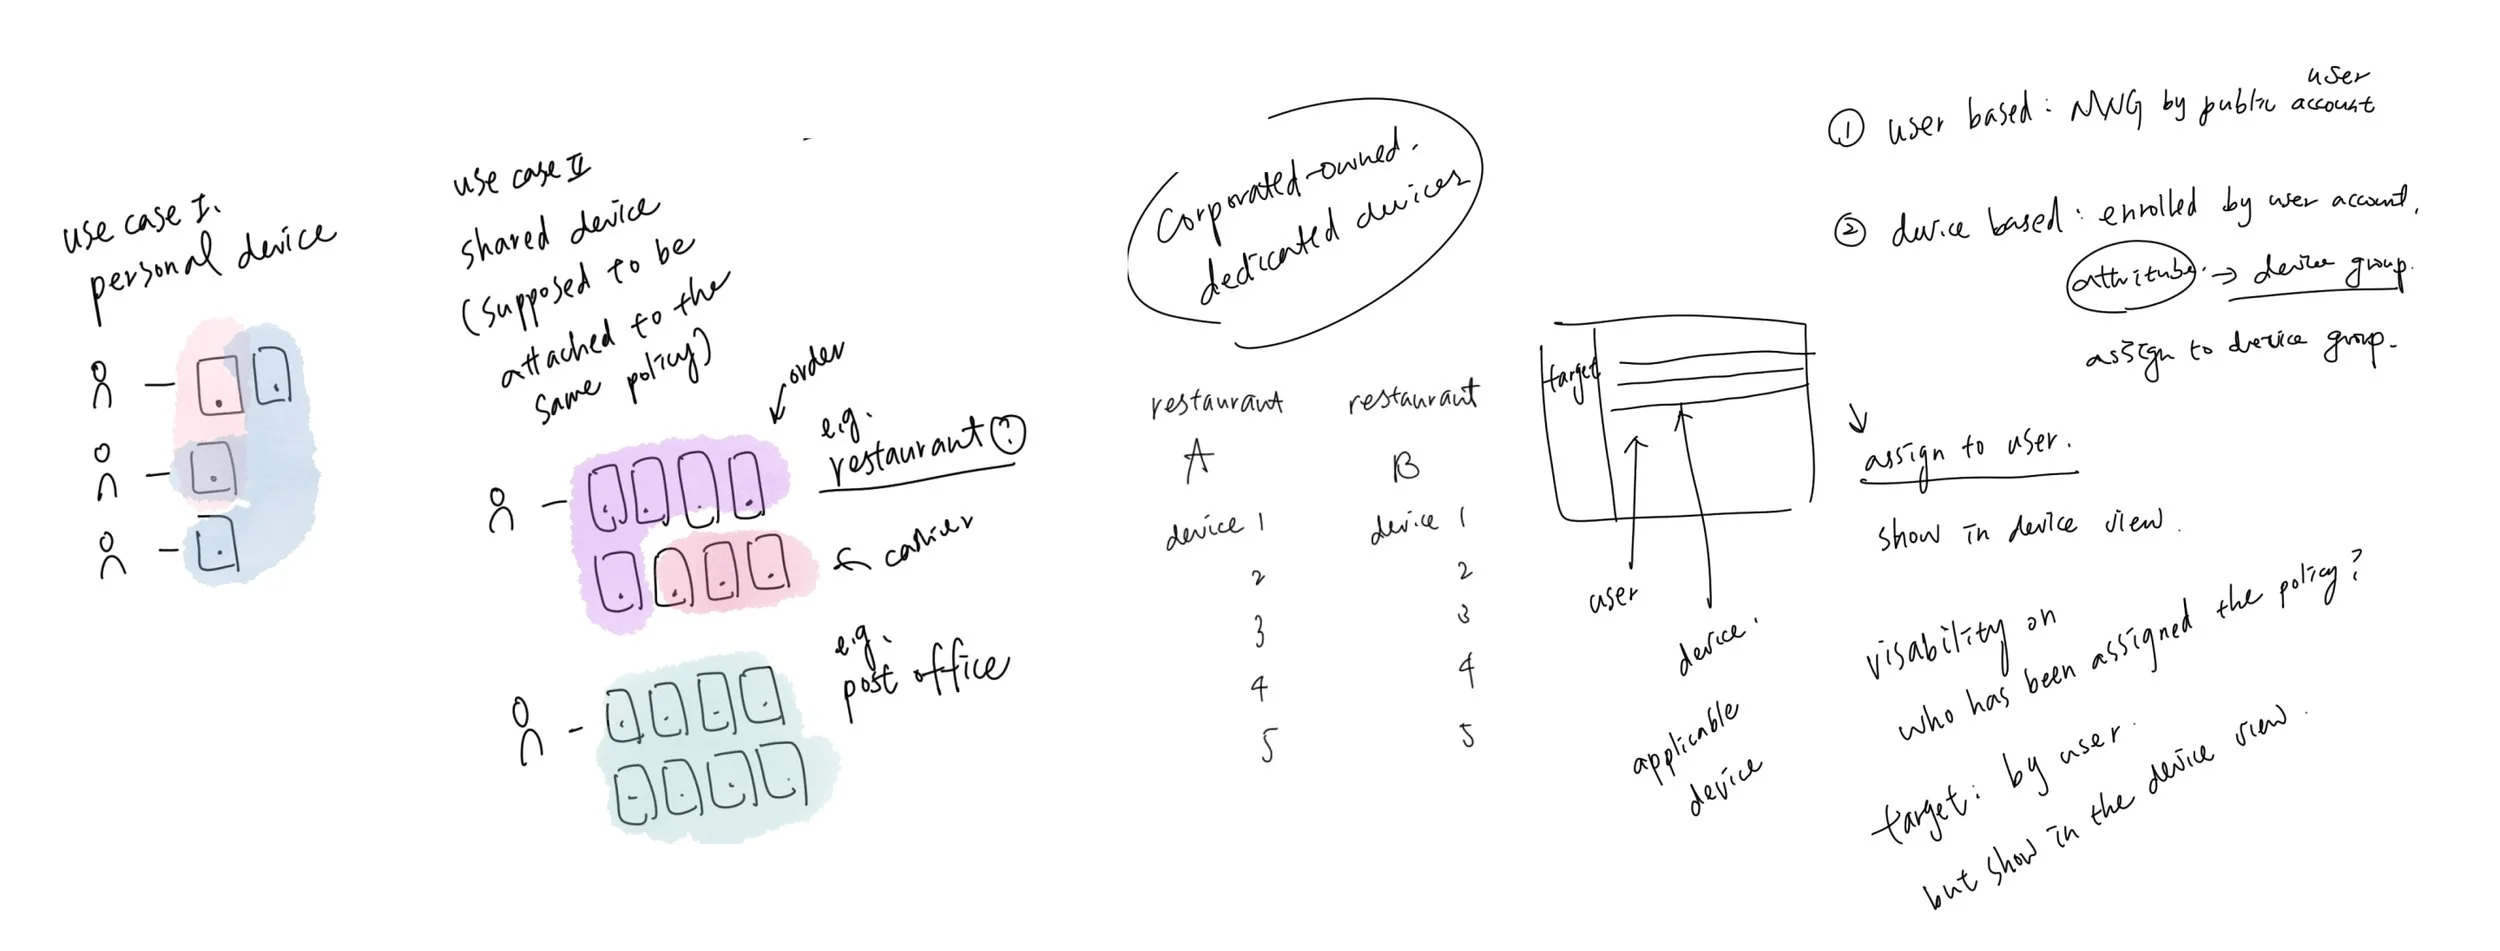 use case I.
personal device
use case II
shared device
(supposed to be
attached to the
same policy)
order
e.g.
restaurant ?
cashier
e.g.
post office
Corporated-owned.
dedicated devices
restaurant
A
device 1
2
3
4
5
restaurant
B
device 1
2
3
4
5
target
user
device.
applicable
device
user
① user based: by public account
② device based: enrolled by user account.
→ device group.
assign to device group.
assign to user.
show in device view.
visability on
who has been assigned the policy?
target: by user.
but show in the device view.